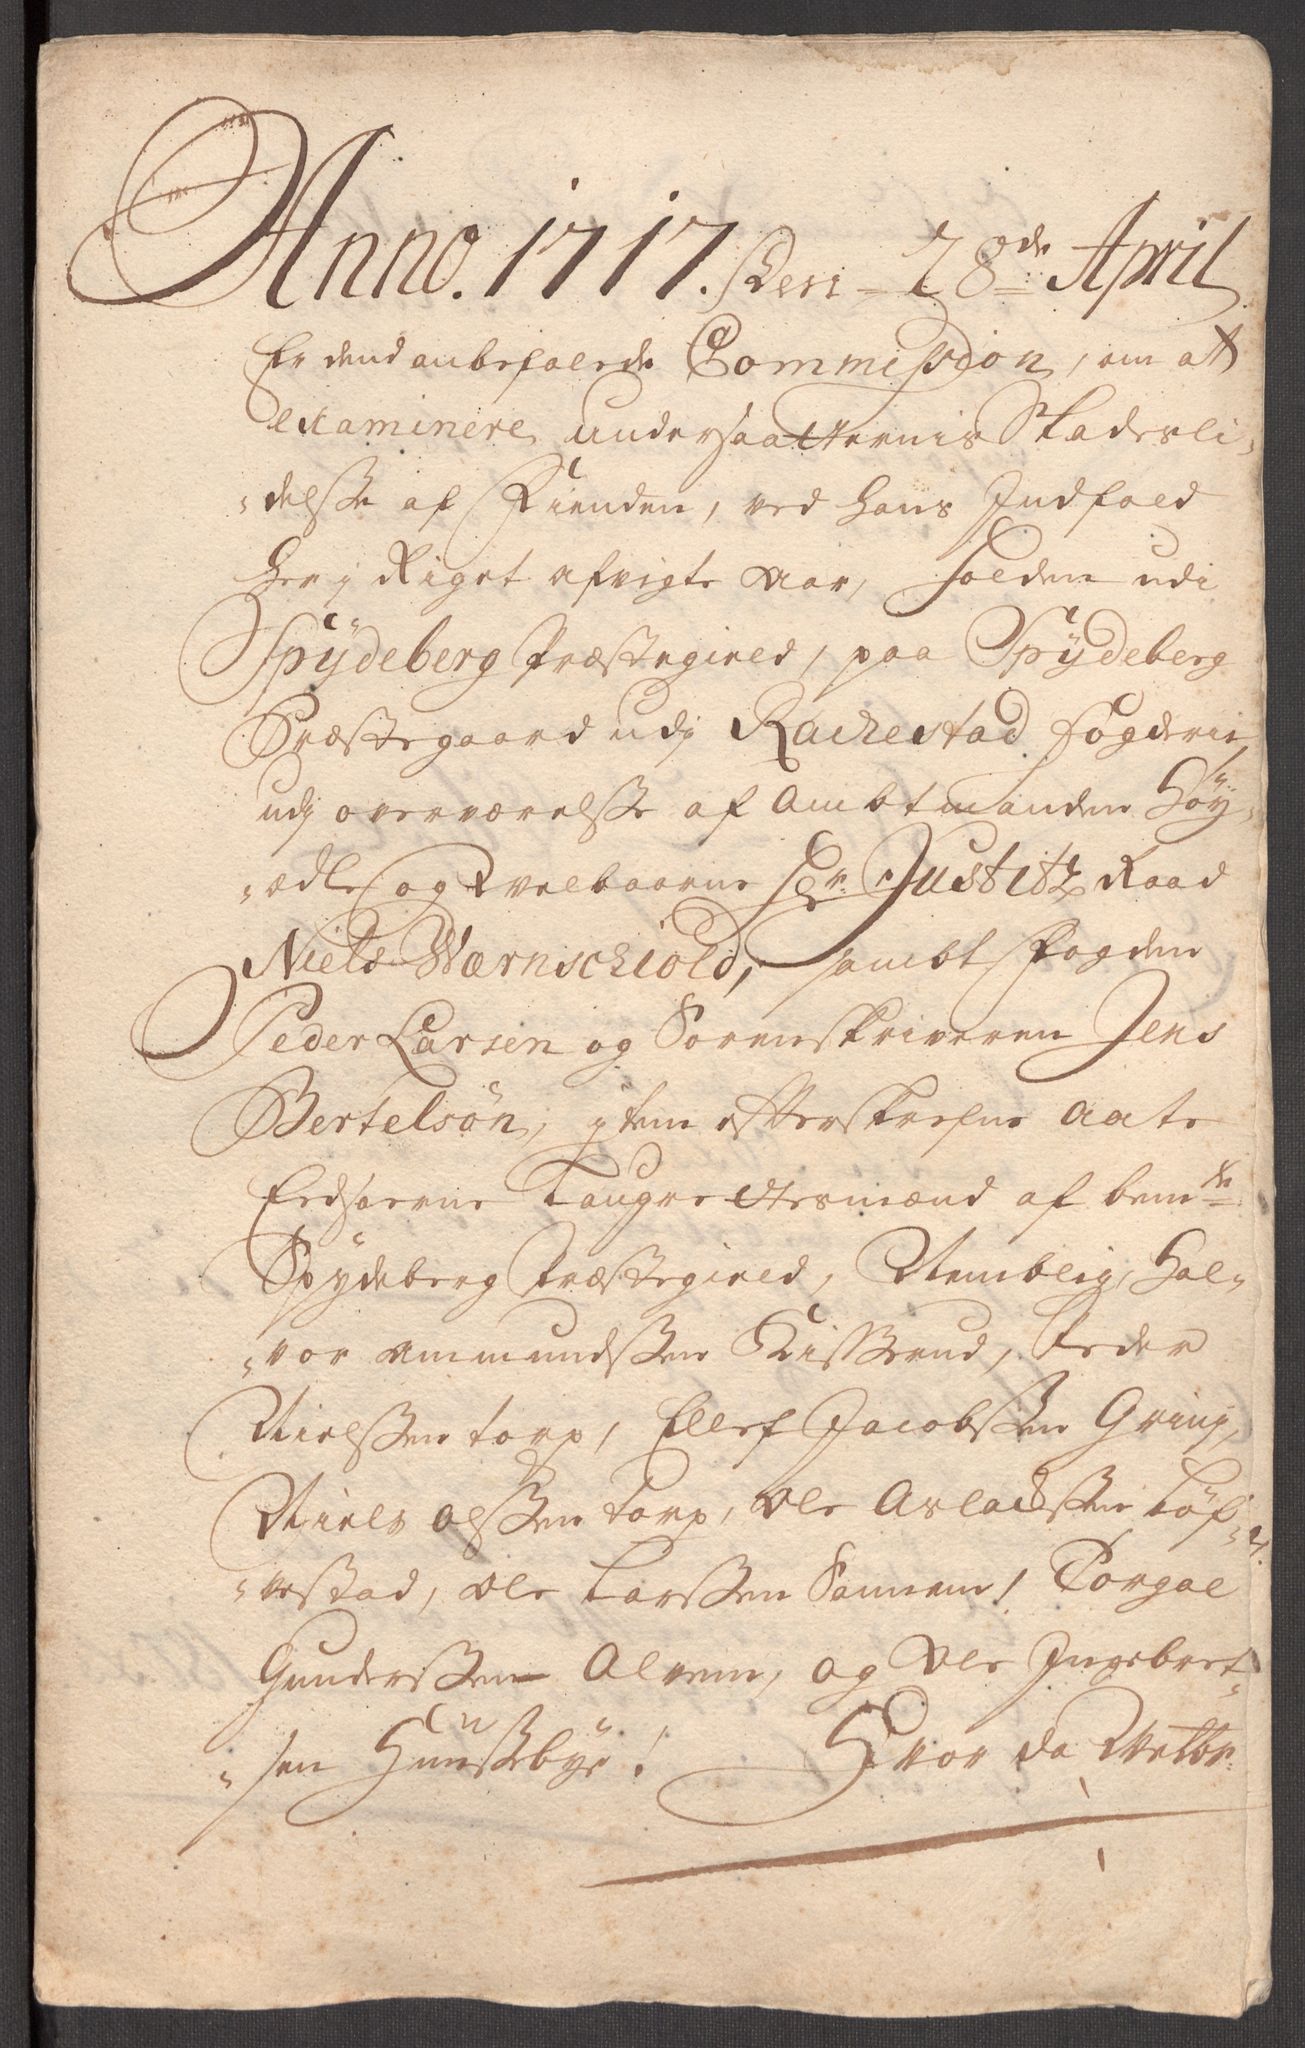 Anno. 1717. Den 28de April
Er dend anbefalede Commission, om at
examinere undersaatternis Skadesli-
-delsse af Fienden, ved hans Indfald
her j Riget afvigte aar, holden udi
Spÿdeberg Præstegield, paa Spÿdeberg
Præstegaard udj Rachestad fogderie,
udj overværelsse af Ambtmanden Höÿ-
-ædle og Velbaarne Hr. Justitz Raad
Niels Wærnschiold, sambt fogden
Peder Larsen og Sorenskriveren Jens
Bertelsøn, jtem efterskrefne aate
Eedsorne Laugrettesmænd af bemte
Spydeberg Præstegield, Nemblig, Hal-
-vor Ammundssen Kisserud, Peder
Nielssen torp, Ellef Jacobssen Grinj,
Niels Olssen torp, Ole Aslachssen Löf-
-vestad, Ole Larssen Sannem, Torgal
Gunderssen Olvem, og Ole Ingebret-
-sen Hunssebye! Hvor da Velbr: